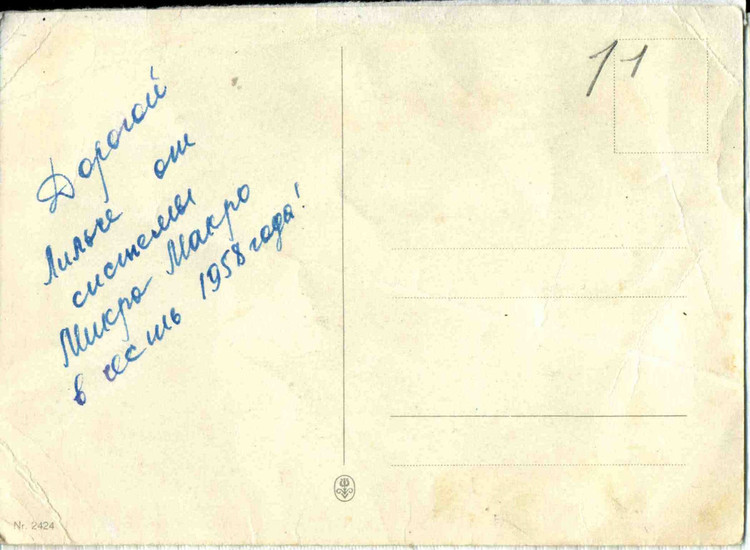 Дорогой
Лильче от
системы
Микро Макро
в честь 1958 года!
11
Nr. 2424